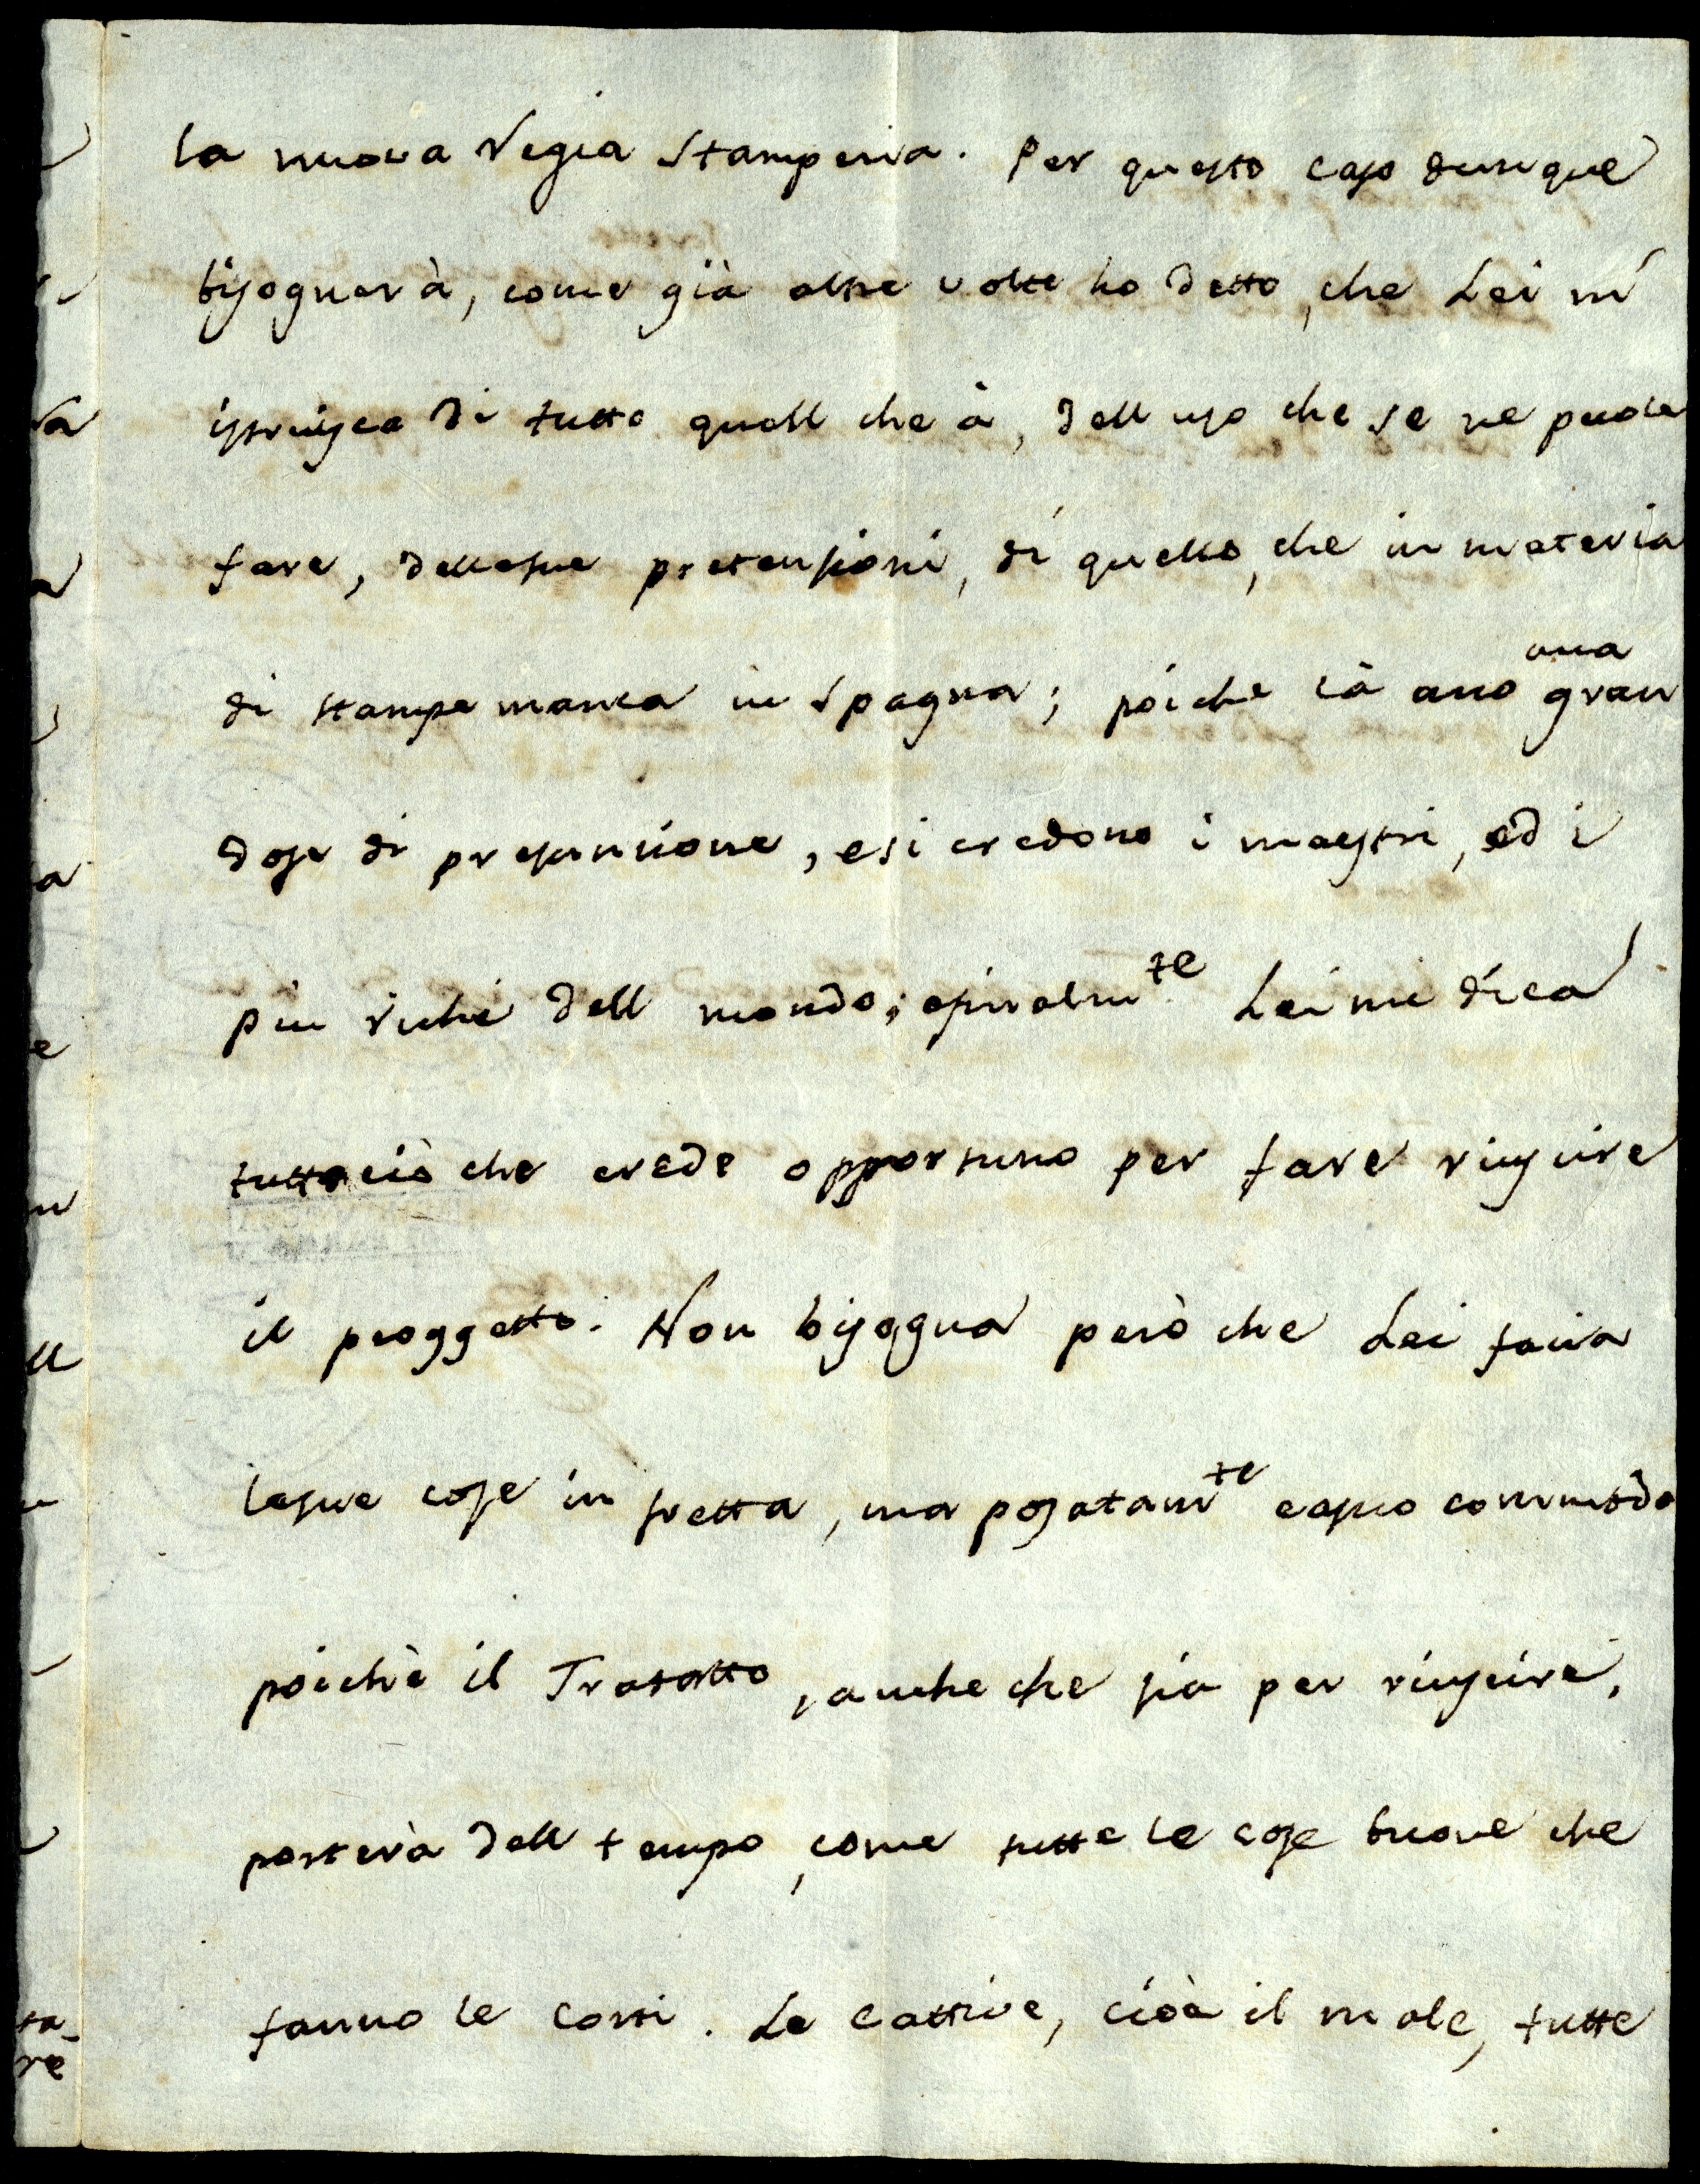 la nuova Regia Stamperia. Per questo caso dunque
bisognerà, come già altre volte ho detto, che Lei mi
istruisca di tutto quell che à, dell uso che se ne puole
fare, delle sue pretensioni, di quello, che in materia
di stampe manca in Spagna; poiche là ano una gran
dose di presunzione, e si credono i maestri, ed i
piu richi dell mondo; e finalmte Lei mi dica
tutto ciò che crede opportuno per fare riuscire
il proggetto. Non bisogna però che Lei facia
le sue cose in fretta, ma posatamte e a suo commodo
poichè il Tratatto, anche che sia per riuscire,
porterà dell tempo, come tutte le cose buone che
fanno le Corti. Le cattive, cioè il male, tutte